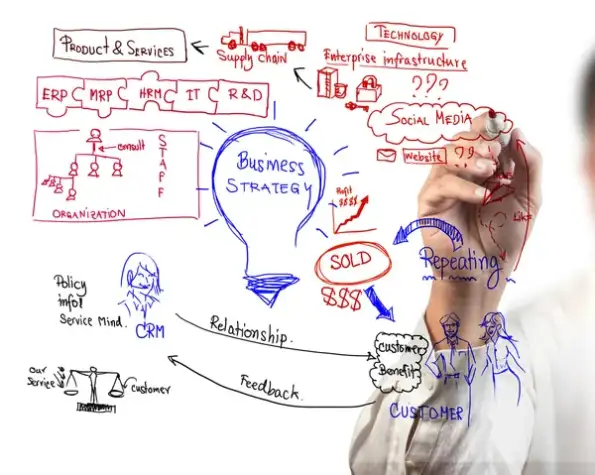 TECHNOLOGY
PRODUCT & SERVICES
Supply chain
Enterprise infrastructure
???
ERP
MRP
HRM
IT
R&D
SOCIAL MEDIA
website
??
consult
STAFF
ORGANIZATION
BUSINESS
STRATEGY
Profit
$$$$
Like
SOLD
$$$
Repeating
Policy
info!
Service Mind.
CRM
Relationship.
Feedback.
Customer
Benefit
CUSTOMER
our
service
customer